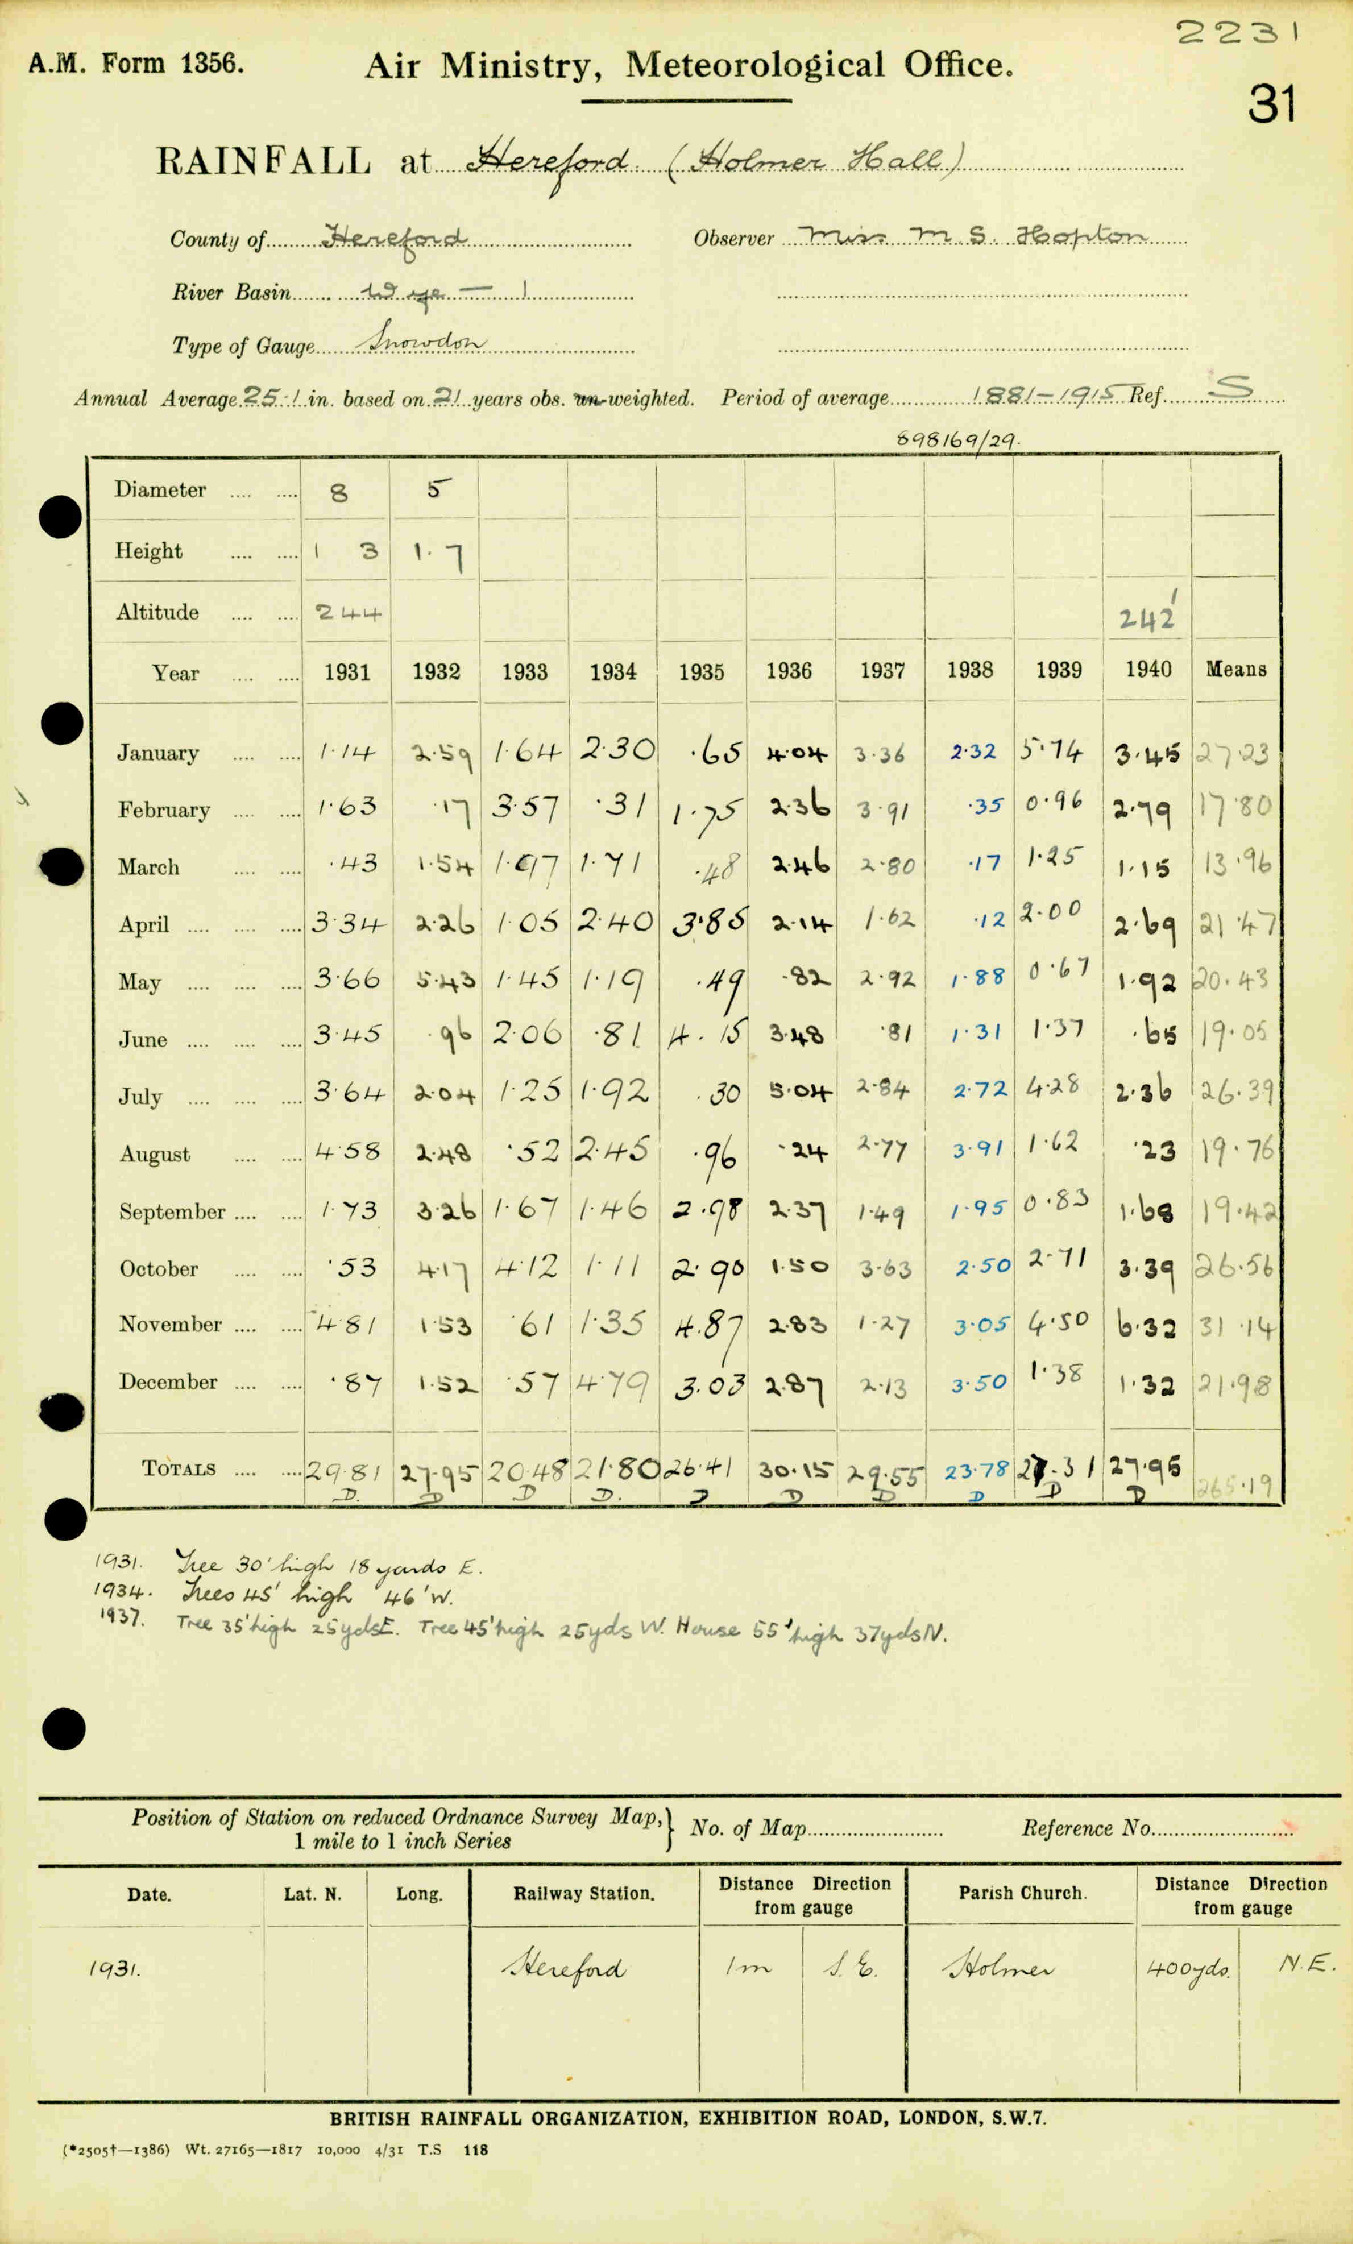 2231
A.M. Form 1356. Air Ministry, Meteorological Office.
31
RAINFALL at Hereford (Holmer Hall)
County of Hereford Observer Miss M. S. Hopton
River Basin Wye — 1
Type of Gauge Snowdon
Annual Average 25.1 in. based on 21 years obs. un-weighted. Period of average 1881-1915 Ref. S
898169/29.
Diameter 8 5
Height 1 3 1.7
Altitude 244 242'
Year 1931 1932 1933 1934 1935 1936 1937 1938 1939 1940 Means
January 1.14 2.59 1.64 2.30 .65 4.04 3.36 2.32 5.74 3.45 27.23
February 1.63 .17 3.57 .31 1.75 2.36 3.91 .35 0.96 2.79 17.80
March .43 1.54 1.97 1.71 .48 2.46 2.80 .17 1.25 1.15 13.96
April 3.34 2.26 1.05 2.40 3.85 2.14 1.62 .12 2.00 2.69 21.47
May 3.66 5.43 1.45 1.19 .49 .82 2.92 1.88 0.67 1.92 20.43
June 3.45 .96 2.06 .81 4.15 3.48 .81 1.31 1.37 .65 19.05
July 3.64 2.04 1.25 1.92 .30 5.04 2.84 2.72 4.28 2.36 26.39
August 4.58 2.48 .52 2.45 .96 .24 2.77 3.91 1.62 .23 19.76
September 1.73 3.26 1.67 1.46 2.98 2.37 1.49 1.95 0.83 1.68 19.42
October .53 4.17 4.12 1.11 2.90 1.50 3.63 2.50 2.71 3.39 26.56
November 4.81 1.53 .61 1.35 4.87 2.83 1.27 3.05 4.50 6.32 31.14
December .87 1.52 .57 4.79 3.03 2.87 2.13 3.50 1.38 1.32 21.98
TOTALS 29.81 27.95 20.48 21.80 26.41 30.15 29.55 23.78 27.31 27.95 265.19
D. D D D. D D D D D D
1931. Tree 30' high 18 yards E.
1934. Trees 45' high 46' W.
1937. Tree 35' high 25ydsE. Tree 45' high 25yds W. House 55' high 37ydsN.
Position of Station on reduced Ordnance Survey Map, 1 mile to 1 inch Series } No. of Map Reference No.
Date. Lat. N. Long. Railway Station. Distance Direction from gauge Parish Church. Distance Direction from gauge
1931. Hereford 1m S.E. Holmer 400yds. N.E.
BRITISH RAINFALL ORGANIZATION, EXHIBITION ROAD, LONDON, S.W.7.
(*2505†—1386) Wt. 27165—1817 10,000 4/31 T.S 118